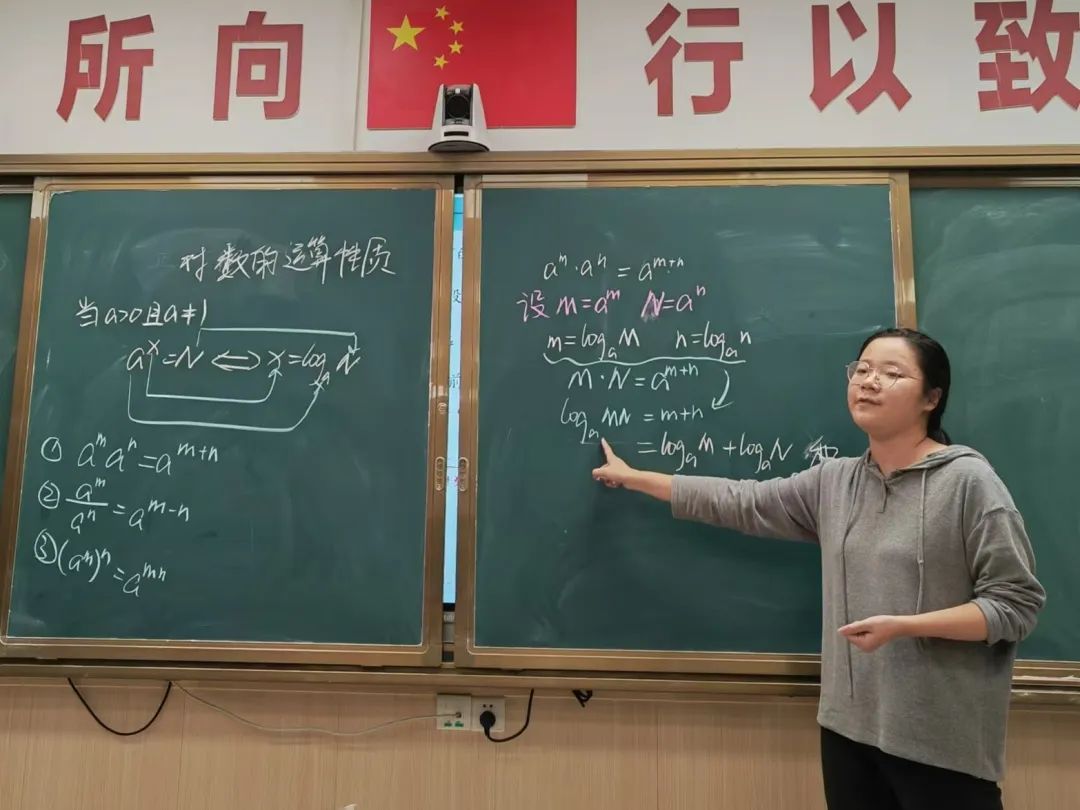 所向 行以致
对数的运算性质
当a>0且a≠1
aˣ=N ⟺ x=logₐN
① aᵐaⁿ=aᵐ⁺ⁿ
② aᵐ/aⁿ=aᵐ⁻ⁿ
③ (aᵐ)ⁿ=aᵐⁿ
aᵐ·aⁿ=aᵐ⁺ⁿ
设 M=aᵐ N=aⁿ
m=logₐM n=logₐn
M·N=aᵐ⁺ⁿ
logₐMN=m+n
=logₐM+logₐN